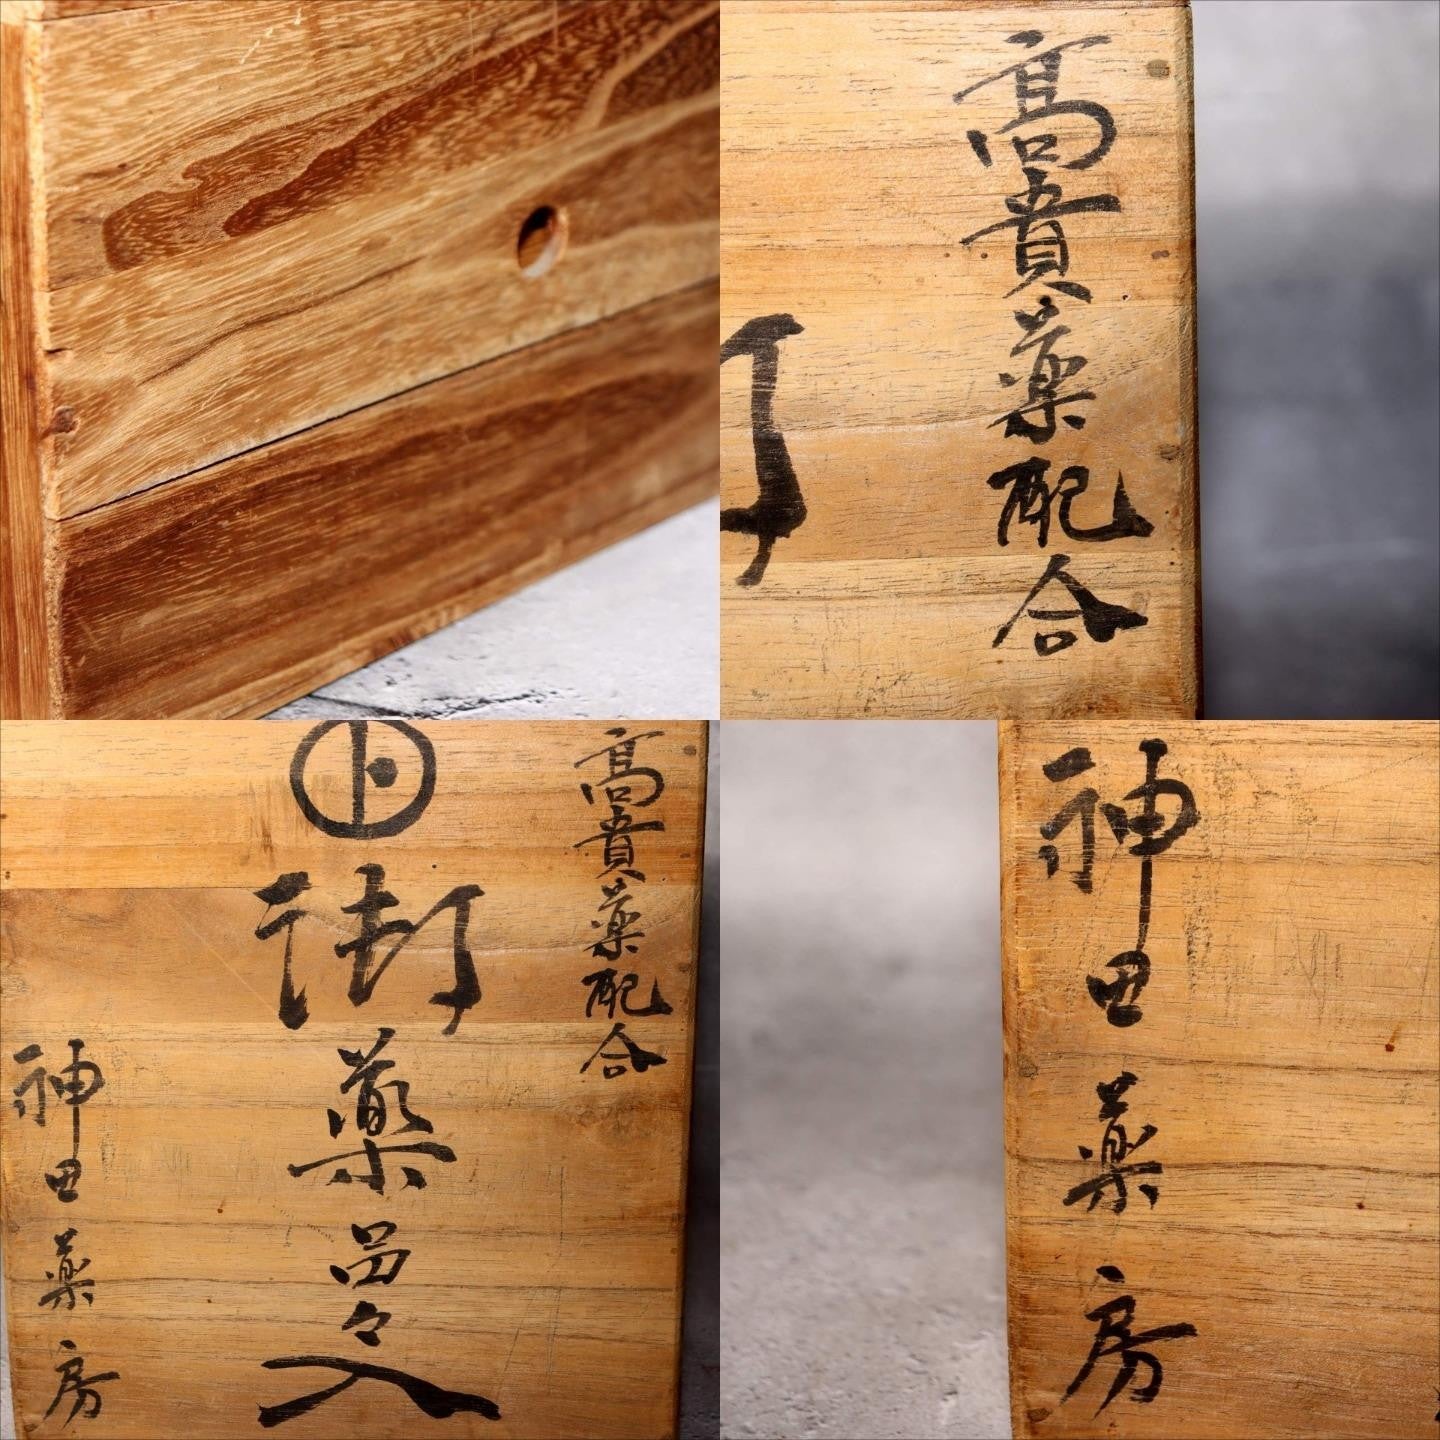 高貴薬配合
卜
御薬品々入
高貴薬配合
神田薬房
神田薬房